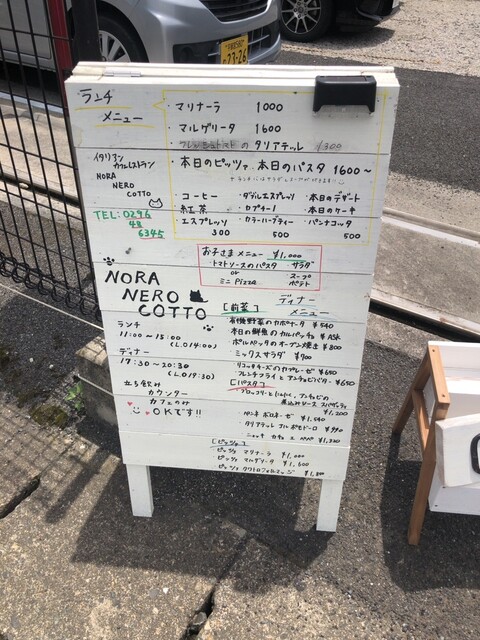 ランチ
メニュー
マリナーラ 1000
マルゲリータ 1600
フレッシュトマトの タリアテッレ 1300
本日のピッツァ 本日のパスタ 1600~
コーヒー ・ダブルエスプレッソ ・本日のデザート
紅茶 ・カプチーノ ・本日のケーキ
エスプレッソ ・カラーハーブティー ・パンナコッタ
300 500 500
イタリアン
カフェレストラン
NORA
NERO
COTTO
TEL:0296
48
6345
お子さまメニュー ¥1,000
・トマトソースのパスタ サラダ
or スープ
ミニ Pizza ポテト
NORA
NERO
COTTO
ランチ
11:00~15:00
(L.O14:00)
ディナー
17:30~20:30
(L.O19:30)
立ち飲み
カウンター
カフェのみ
OKです!!
ディナー
メニュー
[前菜]
有機野菜のカポナータ ¥540
・本日の鮮魚のカルパッチョ ASK
・ポルペッタのオーブン焼き ¥800
・ミックスサラダ ¥700
・リコッタチーズのカプレーゼ ¥650
・フレンチフライと アンチョビバター ¥650
[パスタ]
¥1,200
・ペンネ ボロネーゼ ¥1,540
[ピッツァ]
ピッツァ マリナーラ ¥1,000
ピッツァ マルゲリータ ¥1,600
33-26